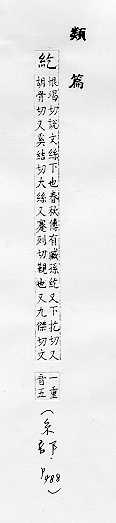 類篇
紇
恨竭切說文絲下也春秋傳有臧孫紇又下扢切又
胡骨切又奚結切大絲又蹇列切觀也又九傑切文
一重
音五
(糸部 p488)